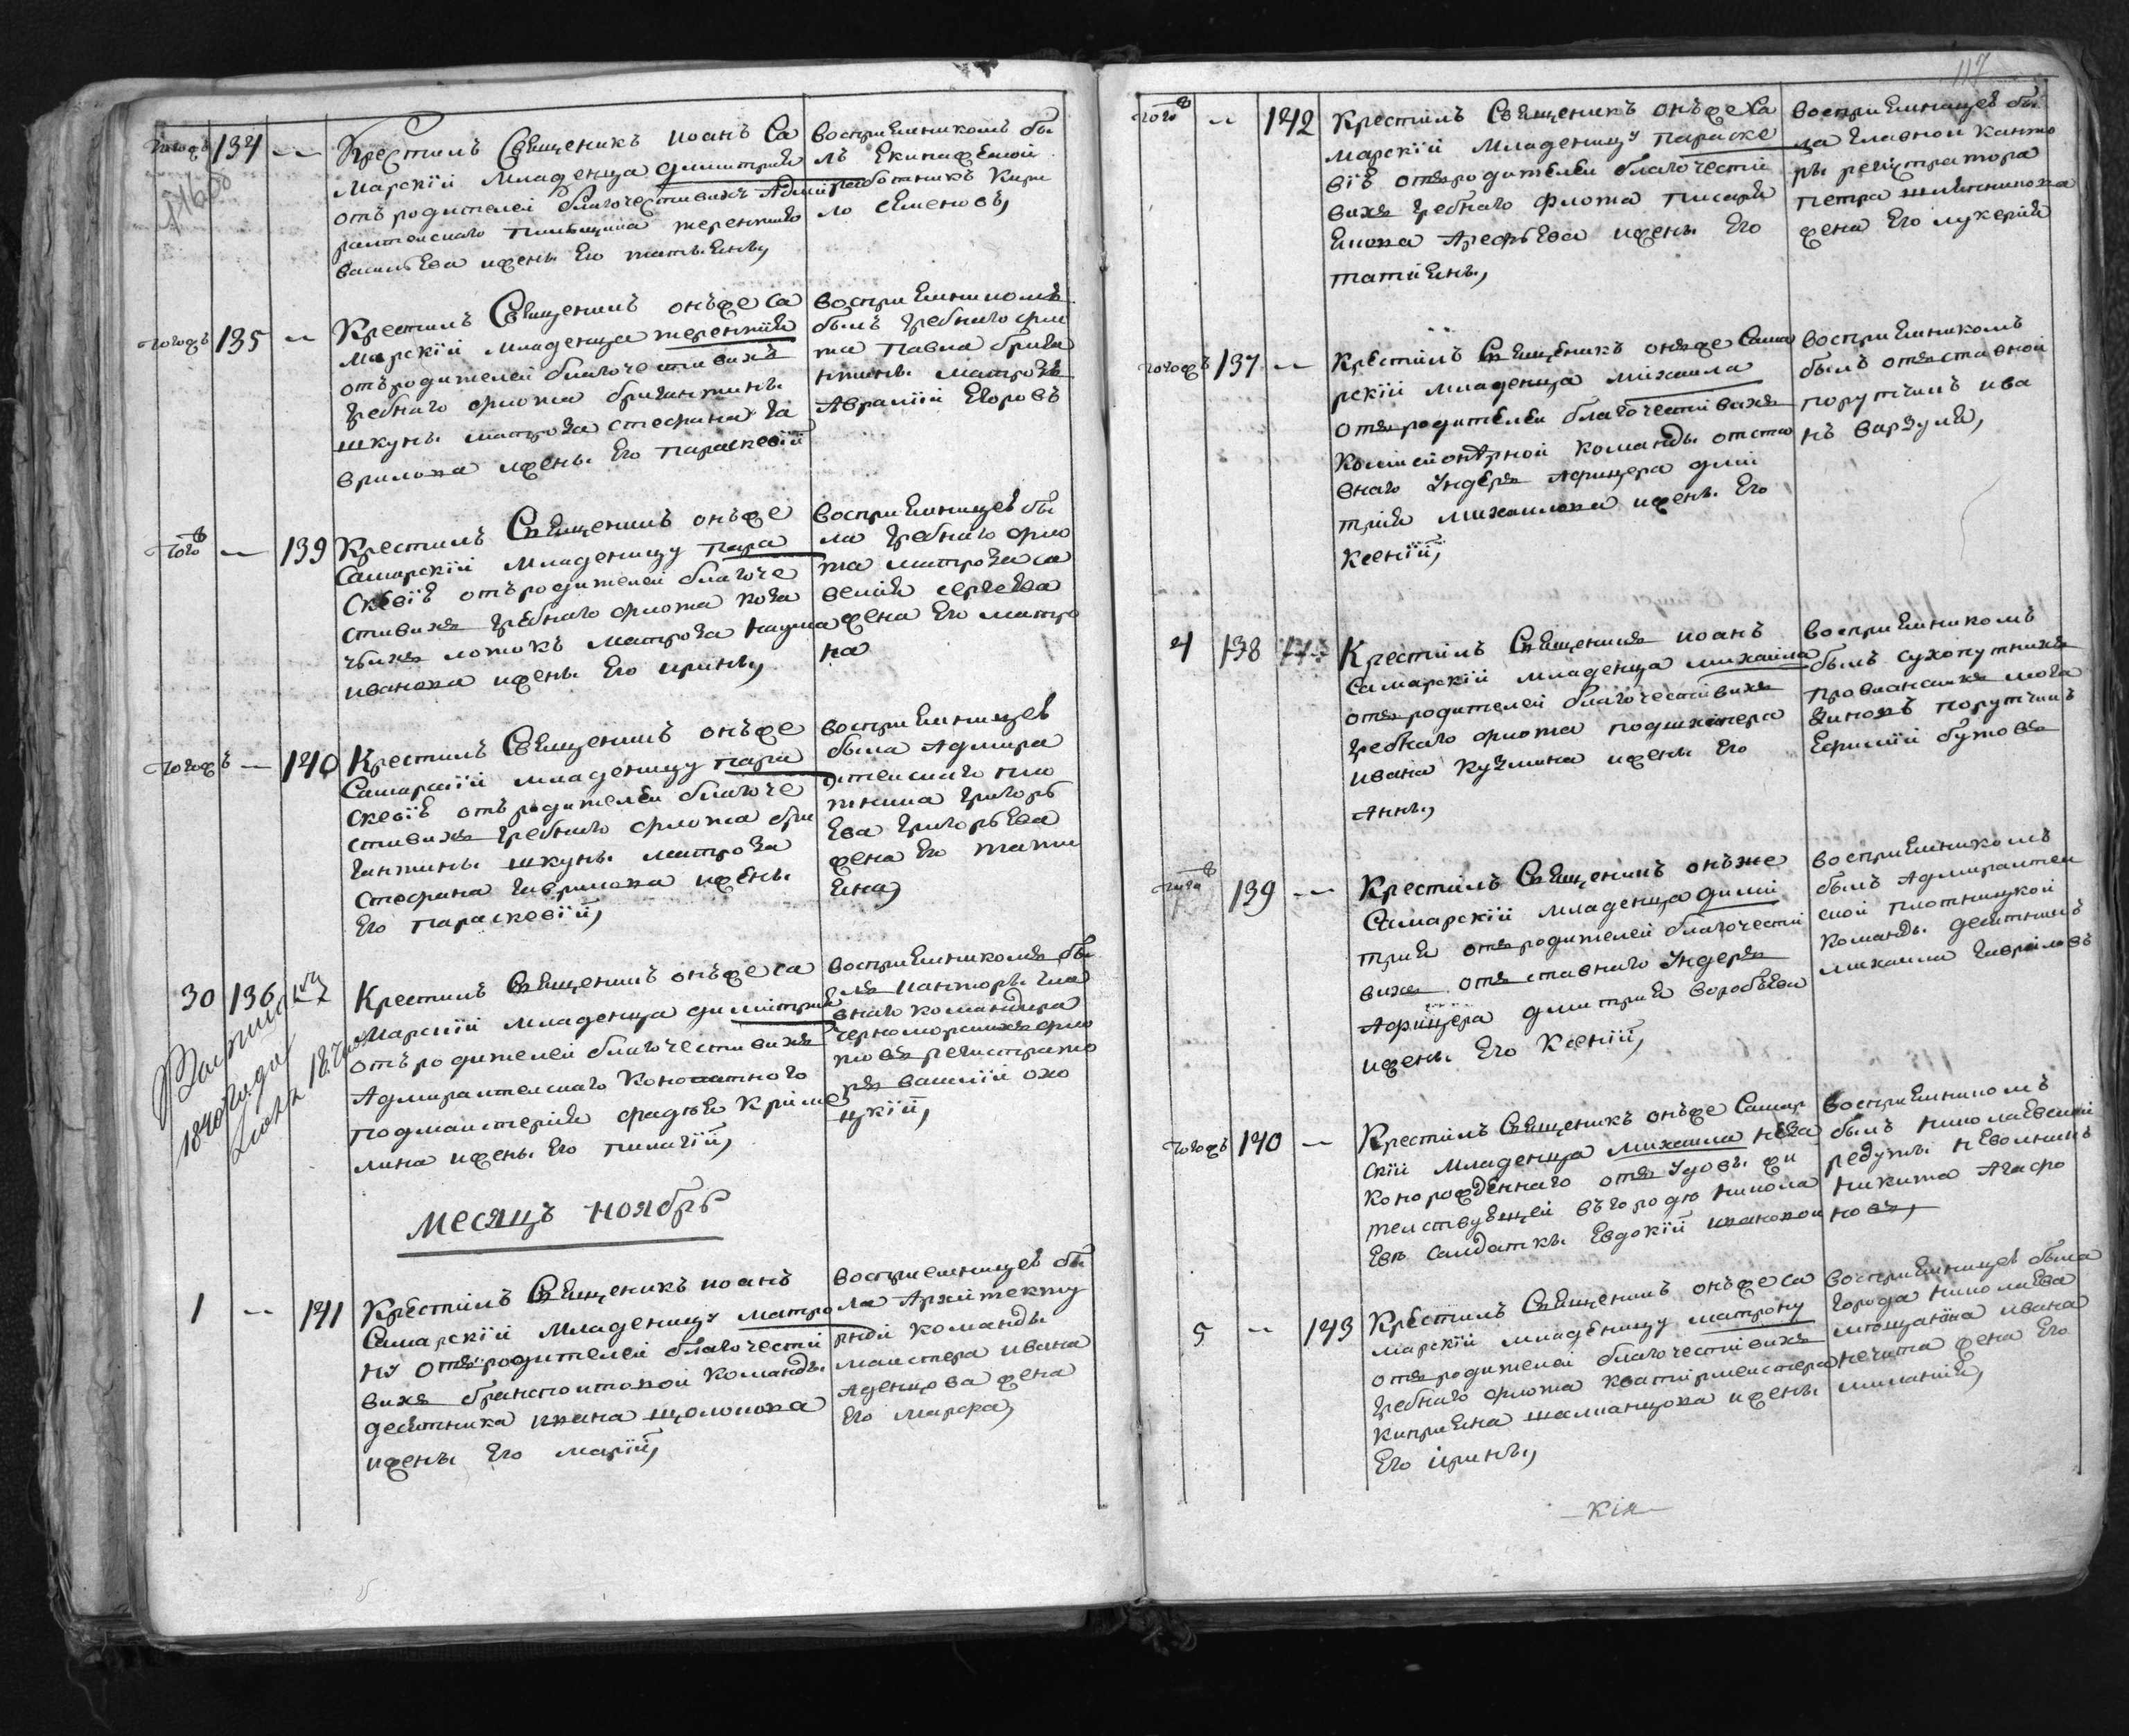 тогожъ 134 — Крестилъ Священикъ иоанъ Са
марскїй Младенца димитрия
отъ родителей благочестивихъ Адми
ралтейскаго пильщика терентия
васильева ижены Его татьяны,
воспрiемникомъ бы
лъ Екипажеской
работникъ Кири
ло Семеновъ,
тогожъ 135 — Крестилъ Священикъ онъже Са
марскїй Младенца терентия
отъ родителей благочестивихъ
гребнаго флота бригантины
шкуны матроза стефана га
врилова ижены Его Параскевїй
воспрiемникомъ
былъ гребнаго фло
та Павла брига
нтины матрозъ
Авраамїй Егоровъ
того — 139 Крестилъ Священикъ онъже
Самарскїй Младеницу Пара
скевїѣ отъ родителей благоче
стивихъ гребнаго флота каза
чьихъ лотокъ Матроза Наума
иванова ижены Его ирины,
воспрiемницеѣ бы
ла гребнаго фло
та матроза са
велия сергеева
жена Его матро
на
тогожъ — 140 Крестилъ Священикъ онъже
Самарскїй младеницу пара
скевїѣ отъ родителей благоче
стивихъ гребнаго флота бри
гантины шкуны матроза
стефана гаврилова ижены
Его параскевїй,
воспрiемницеѣ
была Адмирал
тейскаго пло
тника григорь
Ева григорьева
жена Его тати
яна,
30 136 Крестилъ Священикъ онъже са
марскїй младенца димитрия
отъ родителей благочестивихъ
Адмиралтейскаго Конатного
подмаистерия фадея Криме
лина ижены Его пилагїй,
воспрiемникомъ бы
лъ канторы гла
внаго командира
черноморскихъ фло
товъ регистрато
ръ василїй охо
цкїй,
1840 года
месяцъ ноябрь
1 — 141 Крестилъ Священикъ иоанъ
Самарскїй Младеницу матро
ну отъ родителей благочести
вихъ команды
десятника ивана
ижены Его марїй,
воспрiемницеѣ бы
ла Архитекту
рной команды
маистера ивана
жена
Его марфа,
117
того — 142 Крестилъ Священикъ онъже Са
марскїй Младеницу параске
вїѣ отъ родителей благочести
вихъ гребнаго флота писаря
Арефьева ижены Его
татияны,
воспрiемницеѣ бы
ла главной канто
ры регистратора
петра
жена Его лукерия
тогожъ 137 — Крестилъ Священикъ онъже Сама
рскїй младенца михаила
отъ родителей благочестивихъ
отста
внаго Ундеръ Афицера дми
трия михаилова ижены Его
Ксенїй,
воспрiемникомъ
былъ отъставной
порутчикъ ива
нъ варзуля,
4 138 Крестилъ Священикъ иоанъ
самарскїй младенца михаила
отъ родителей благочестивихъ
гребнаго флота подшхипера
ивана кузмина ижены Его
Анны,
воспрiемникомъ
былъ сухопутнихъ
провианскихъ мага
зиновъ порутчикъ
Ефимїй бутовъ
того 139 — Крестилъ Священикъ онъже
Самарскїй младенца дими
трия отъ родителей благочести
вихъ отъ ставнаго Ундеръ
Афицера дмитрия воробьева
ижены Его Ксенїй,
воспрiемникомъ
былъ Адмиралтей
ской плотницкой
команды десятникъ
михаила гавриловъ
тогожъ 140 — Крестилъ Священикъ онъже Самар
скїй Младенца михаила неза
конорожденнаго отъ Удовы жи
телствующей въгороде никола
Еве салдатки Евдокїй ивановой
воспрiемникомъ
былъ николаевской
редуты невольникъ
никита Агафо
новъ,
5 — 143 Крестилъ Священикъ онъже са
марскїй младеницу матрону
отъ родителей благочестивихъ
гребнаго флота кватирмеистера
киприяна ижены
Его ирины,
воспрiемницеѣ была
города николаева
мещанина ивана
нечита жена Его
милания,